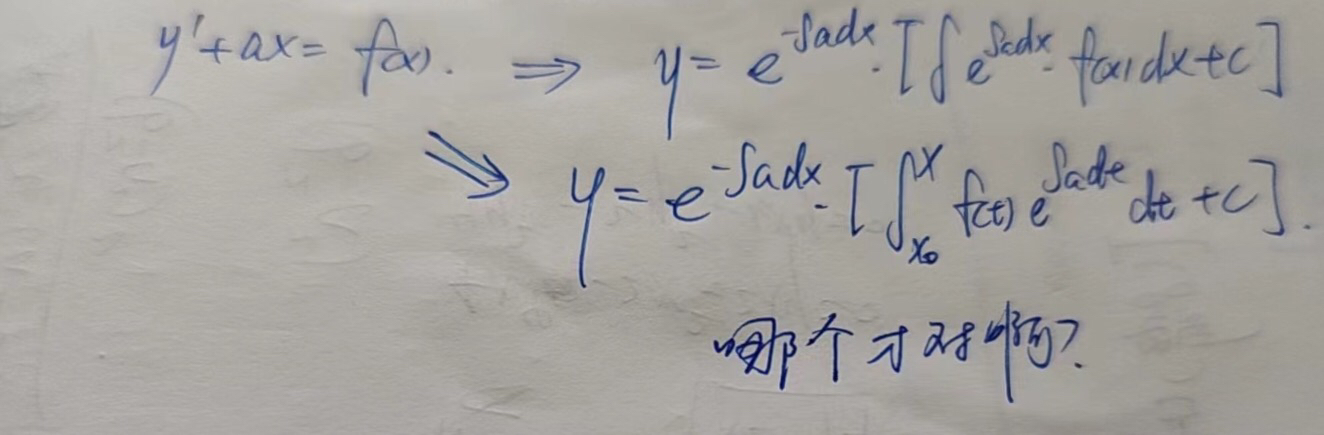 y'+ax= f(x). ⇒ y= e^{-∫adx}·[∫e^{∫adx}· f(x)dx+c]
⇒ y= e^{-∫adx}·[∫_{x₀}^{x} f(t)e^{∫adt}dt +c].
哪个才对啊?